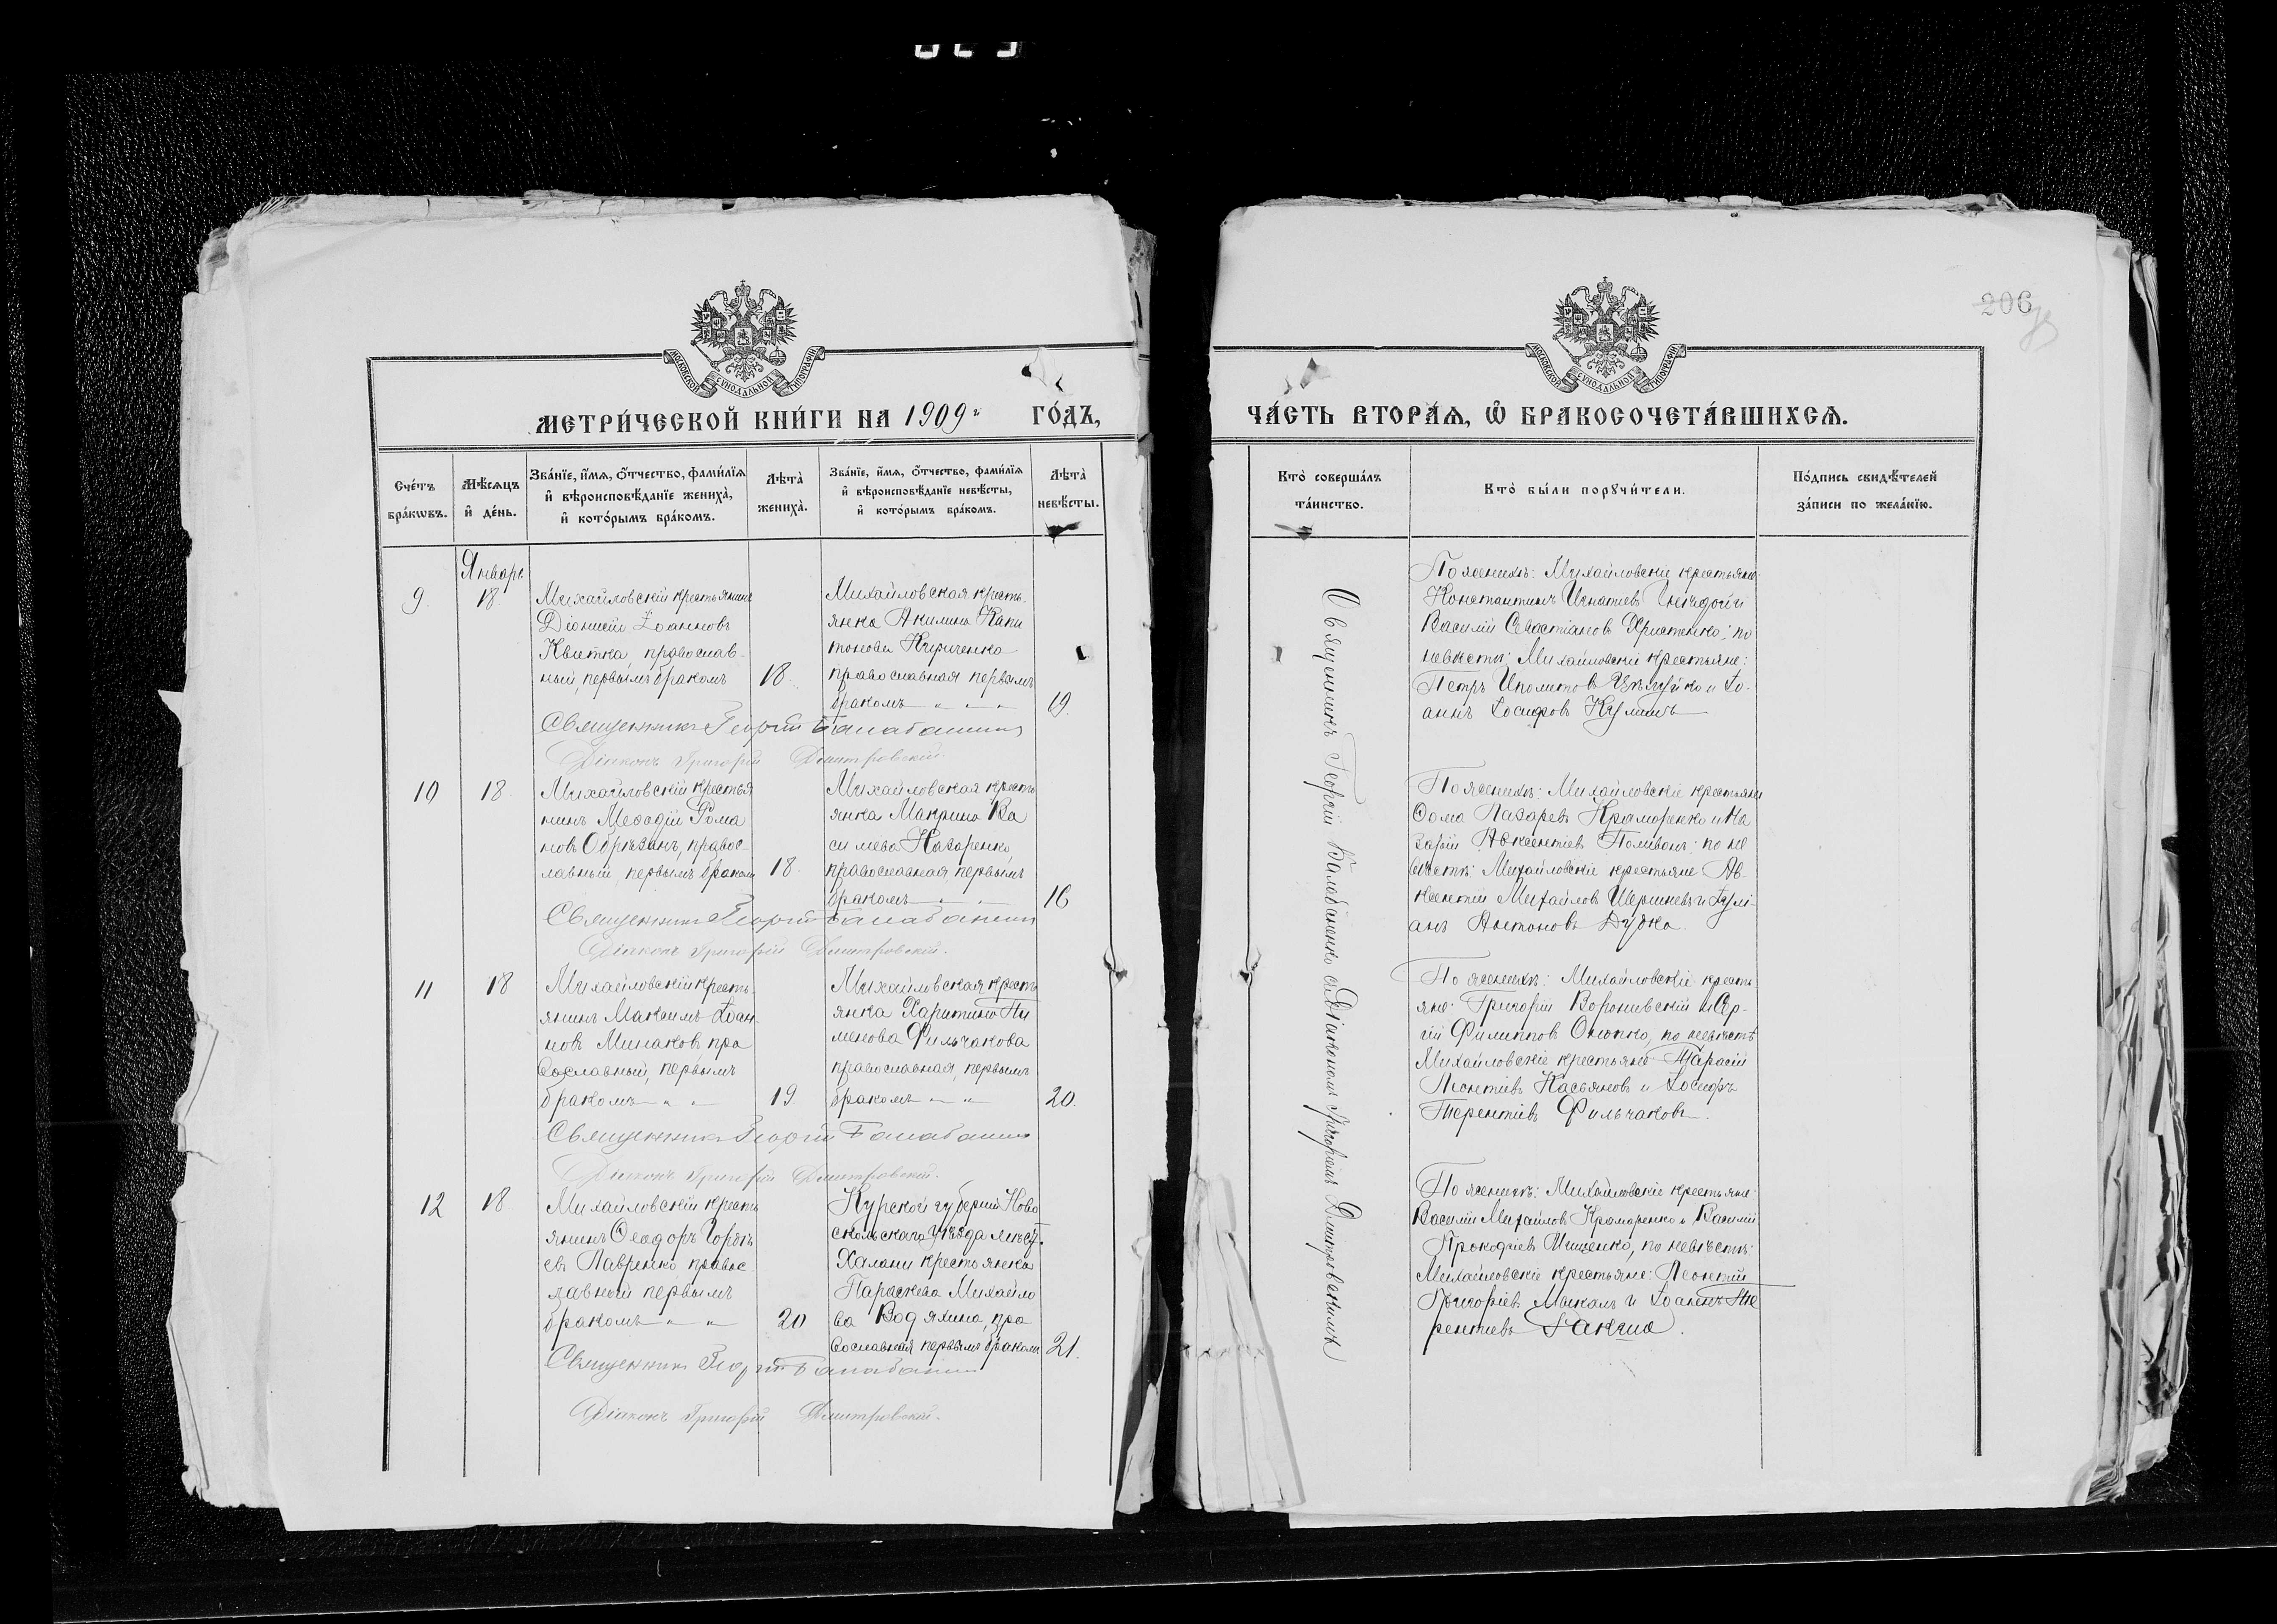 206
МОСКОВСКОЙ СѴНОДАЛЬНОЙ ТИПОГРАФІИ
МЕТРИ́ЧЕСКОЙ КНИ́ГИ НА 1909 ГО́ДЪ,
Сче́тъ бра́кѡвъ.
Мѣ́сяцъ и҆ де́нь.
Зва́нїе, и҆́мѧ, ѻ҆́тчество, фами́лїѧ и҆ вѣроисповѣ́данїе жениха̀, и҆ кото́рымъ бра́комъ.
Лѣта̀ жениха̀.
Зва́нїе, и҆́мѧ, ѻ҆́тчество, фами́лїѧ и҆ вѣроисповѣ́данїе невѣ́сты, и҆ кото́рымъ бра́комъ.
Лѣта̀ невѣ́сты.
Январь
9. 18.
Михайловскій крестьянинъ
Діонисій Іоанновъ
Квитка, православ-
ный, первымъ бракомъ
18.
Михайловская кресть-
янка Акилина Капи
тонова Кириченко
православная первымъ
бракомъ
19.
Священникъ Георгій Балабаненко
Діаконъ Григорій Дмитровскій.
10 18.
Михайловскій крестья
нинъ Меѳодій Рома
новъ Обрѣзанъ, правос-
лавный, первымъ бракомъ
18.
Михайловская кресть
янка Макрина Ва
силіева Назаренко,
православная, первымъ
бракомъ
16
Священникъ Георгій Балабаненко
Діаконъ Григорій Дмитровскій.
11 18
Михайловскій кресть-
янинъ Максимъ Іоан-
новъ Минаковъ пра
вославный, первымъ
бракомъ
19.
Михайловская кресть
янка Харитина Пи
менова Фильчакова
православная, первымъ
бракомъ
20.
Священникъ Георгій Балабаненко
Діаконъ Григорій Дмитровскій.
12 18.
Михайловскій кресть
янинъ Ѳеодоръ
евъ Лавренко правос
лавный первымъ
бракомъ
20
Курской губерніи Ново
скольскаго уѣзда
Халани крестьянка
Параскева Михайло
ва Водяхина, пра
вославная первымъ бракомъ
21.
Священникъ Георгій Балабаненко
Діаконъ Григорій Дмитровскій.
МОСКОВСКОЙ СѴНОДАЛЬНОЙ ТИПОГРАФІИ
ЧА́СТЬ ВТОРА́Ѧ, Ѡ҆ БРАКОСОЧЕТА́ВШИХСѦ.
Кто̀ соверша́лъ та́инство.
Кто̀ бы́ли порꙋчи́тели.
По́дпись свидѣ́телей за́писи по жела́нїю.
Священникъ Георгій Балабаненко съ Діакономъ Григоріемъ Дмитровскимъ
По женихѣ: Михайловскіе крестьяне:
Константинъ Игнатіевъ и
Василій Севастіановъ Христенко; по
невѣстѣ: Михайловскіе крестьяне:
Петръ Иполитовъ и Іо-
аннъ Іосифовъ
По женихѣ: Михайловскіе крестьяне
Ѳома Лазаревъ Крамаренко и На
зарій Авксентіевъ Поливанъ; по не
вѣстѣ: Михайловскіе крестьяне Ав-
ксентій Михайловъ и Іулі-
анъ Антоновъ Дудка.
По женихѣ: Михайловскіе кресть
яне: Григорій и Сер-
гій Филипповъ по невѣстѣ
Михайловскіе крестьяне Тарасій
Леонтіевъ Касьяновъ и Іосифъ
Терентіевъ Фильчаковъ.
По женихѣ: Михайловскіе крестьяне:
Василій Михайловъ Крамаренко и Василій
Прокофіевъ Ищенко, по невѣстѣ:
Михайловскіе крестьяне: Леонтій
Григоріевъ и Іоаннъ Те
рентіевъ